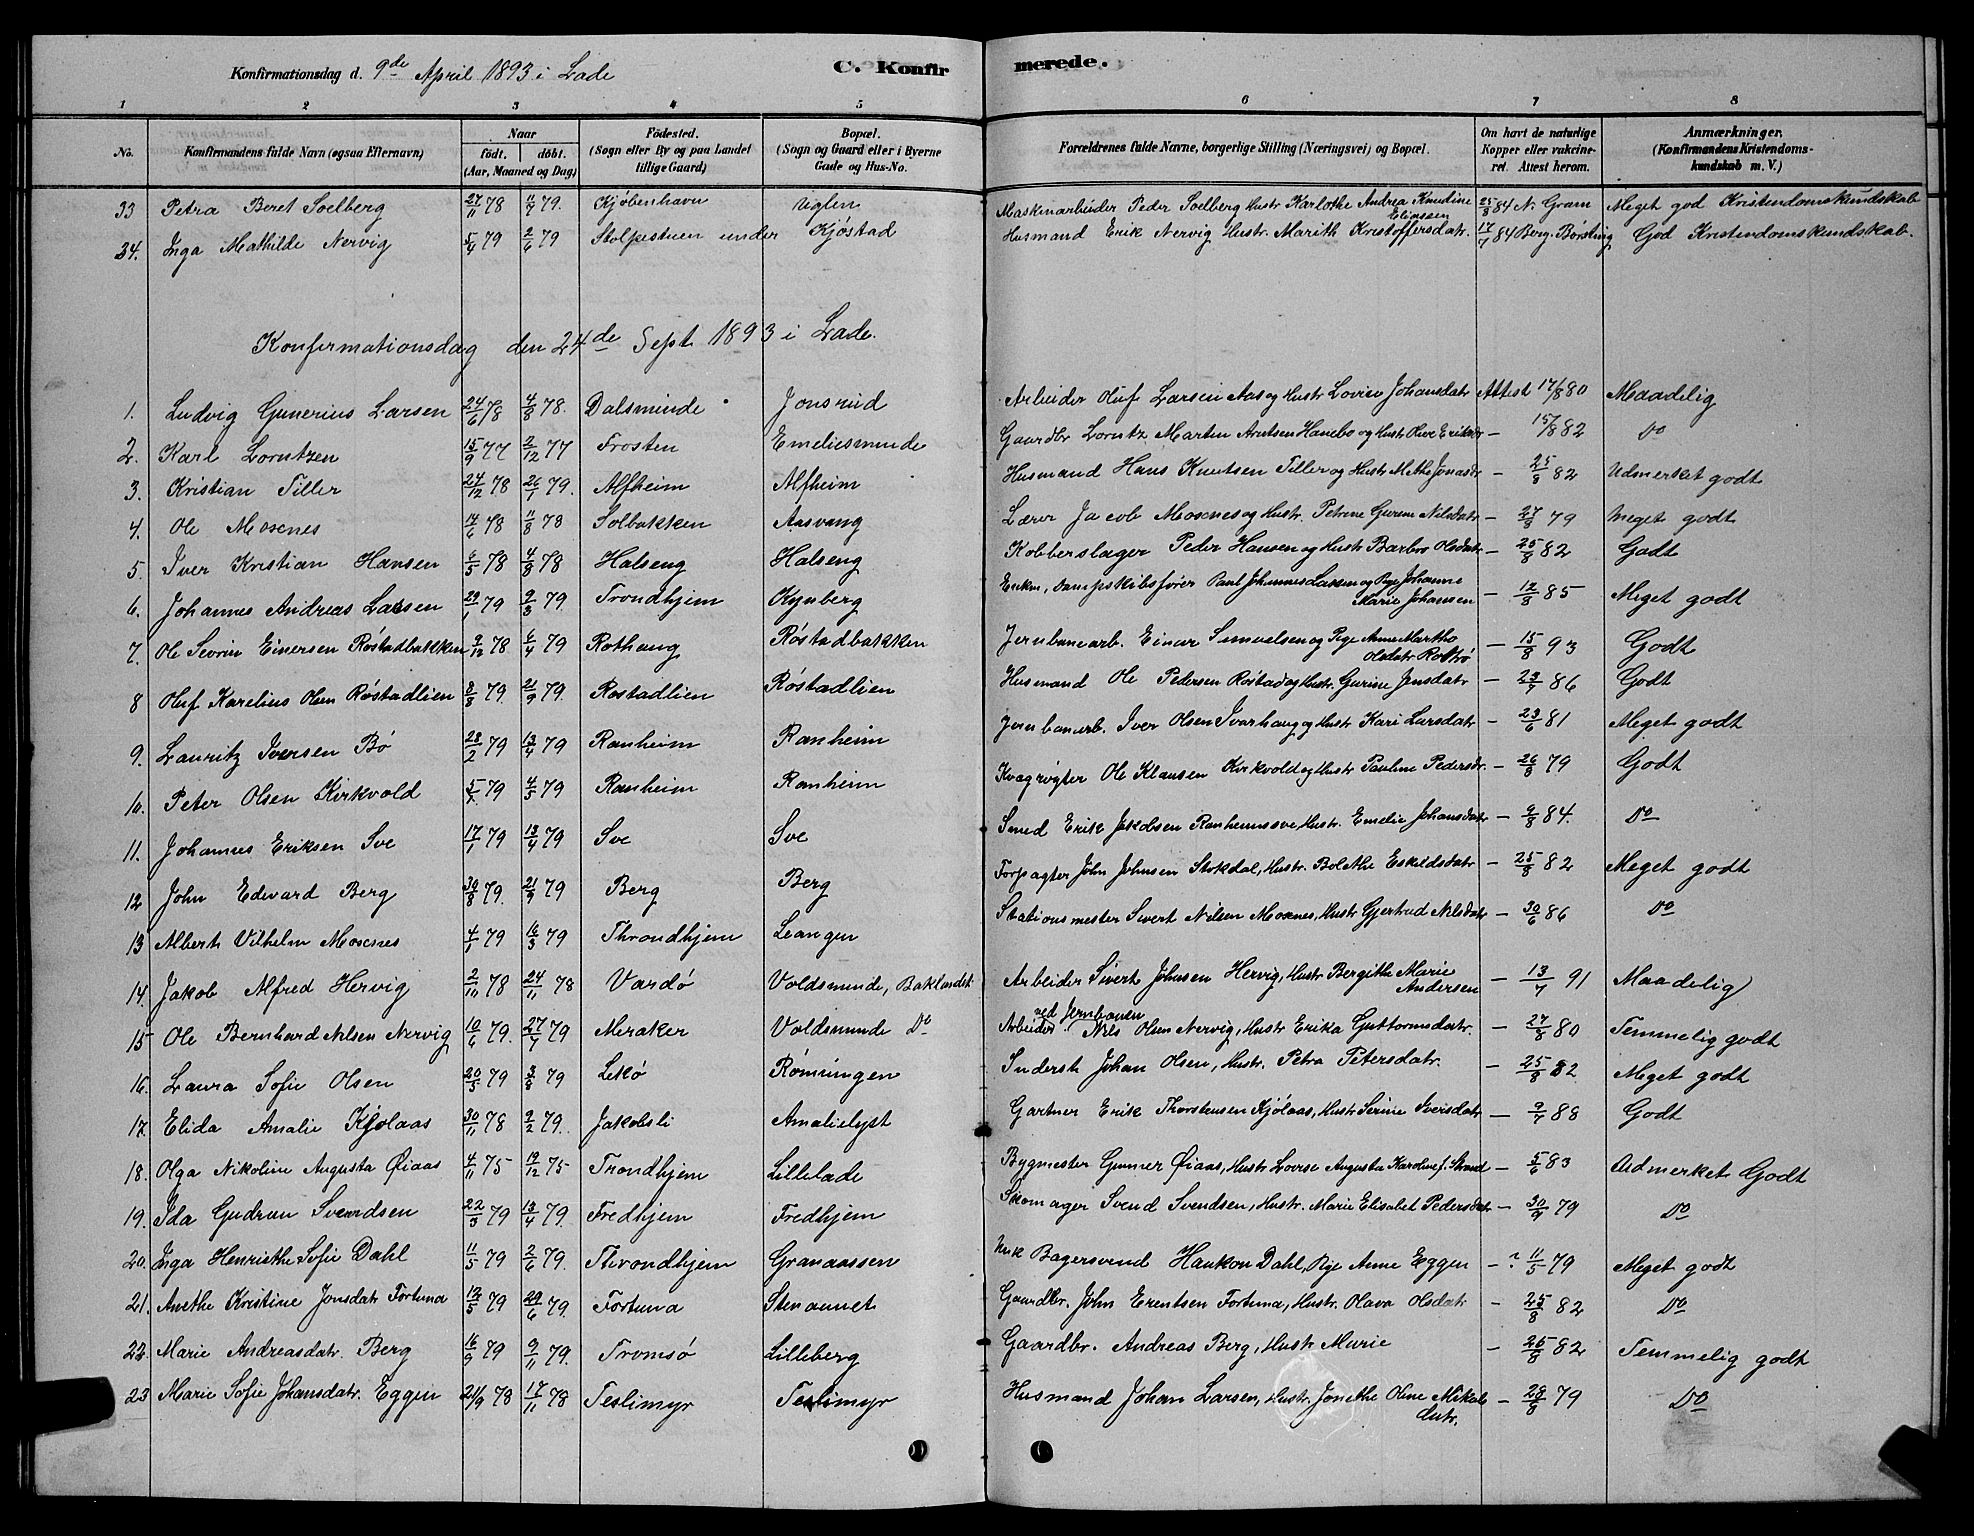 Konfirmationsdag d. 9de April 1893 i Lade C. Konfirmerede.
1 2 3 4 5 6 7 8
No. Konfirmandens fulde Navn (ogsaa Efternavn) Naar født. døbt. (Aar, Maaned og Dag) Fødested. (Sogn eller By og paa Landet tillige Gaard) Bopæl. (Sogn og Gaard eller i Byerne Gade og Hus-No. Forældrenes fulde Navne, borgerlige Stilling (Næringsvei) og Bopæl. Om havt de naturlige Kopper eller vakcineret. Attest herom. Anmærkninger. (Konfirmandens Kristendomskundskab m. V.)
33 Petra Beret Soelberg 27/11 78 11/7 79. Kjøbenhavn Uglen Maskinarbeider Peder Soelberg Hustr Karlothe Andrea Knudine Eliassen 25/8 84 N. Gram Meget god Kristendomskundskab
34. Inga Mathilde Nervig 5/4 79 2/6 79 Stolpestuen under Kjøstad Husmand Erik Nervig Hustr. Marith Kristoffersdatr. 17/7 84 Berg. Børsting God Kristendomskundskab.
Konfirmationsdag den 24de Sept 1893 i Lade.
1. Ludvig Gunerius Larsen 24/6 78 4/8 78. Dalsminde Jonsrud Arbeider Oluf Larsen Aas og Hustr Lovise Johansdatr Attest 17/8 80 Maadelig
2. Karl Lorntzen 15/9 77 2/12 77 Frosten Emeliesminde Gaardbr Lorntz Martin Arntsen Hanebo og Hustr Oline Eriksdr — 15/8 82 Do
3. Kristian Tiller 24/12 78 26/1 79. Alfheim Alfheim Husmand Hans Knutsen Tiller og Hustr Methe Jonasdr — 25/8 82 Udmerket godt
4. Ole Moxnes 14/6 78 11/8 78 Solbakken Aasvang Lærer Jacob Moxnes og Hustr. Petrine Gurine Nilsdatr — 27/8 79 Meget godt
5. Iver Kristian Hansen 6/5 78 4/8 78 Halseng Halseng Kobberslager Peder Hansen og Hustr Barbro Olsdatr — 25/8 82 Godt
6. Johannes Andreas Lassen 29/1 79 9/3 79. Trondhjem Kynberg Enkm, Dampskibsfører Paul Johannes Lassen og Pige Johanne Marie Johansen — 12/8 85 Meget godt
7. Ole Sevrin Einersen Røstadbakken 9/12 78 6/4 79 Rothaug Røstadbakken Jernbanearb. Einar Simuelsen og Pige Anne Martha Olsdatr Roltrø — 15/8 93 Godt
8 Oluf Karelius Olsen Røstadlien 8/8 79. 21/9 79. Rostadlien Røstadlien Husmand Ole Pedersen Røstad og Hustr. Gurine Jensdatr — 23/7 86 Godt
9. Lauritz Iversen Bø 28/2 79 13/4 79 Ranheim Ranheim Jernbanearb. Iver Olsen Ivarhaug og Hustr Kari Larsdatr — 23/6 81 Meget godt
10. Peter Olsen Kirkvold 5/2 79 4/5 79 Ranheim Ranheim Kvagrøgter Ole Klausen Kirkvold og Hustr Pauline Pedersdr. — 26/8 79 Godt
11. Johannes Eriksen Sve 17/1 79 13/4 79 Sve Sve Smed Erik Jakobsen Ranheimssve, Hustr. Emelie Johansdatr — 9/8 84. Do
12 John Edevard Berg 30/8 79. 21/9 79 Berg Berg Forpagter John Johnsen Stokdal, Hustr. Bolethe Eskildsdatr — 25/8 82 Meget godt
13 Albert Vilhelm Moxnes 4/1 79 16/3 79 Throndhjem Leangen Stationsmester Sivert Nilsen Moxnes, Hustr Gjertrud Nilsdatr — 30/6 86 Do
14. Jakob Alfred Hervig 2/10 78 24/11 78 Vardø Voldsminde, Baklandet Arbeider Sivert Johnsen Hervig, Hustr Bergithe Marie Andersen — 13/7 91 Maadelig
15 Ole Bernhard Nilsen Nervig 10/6 79. 27/7 79 Meraker Voldsminde Do Arbeider ved Jernbanen Nils Olsen Nervig, Hustr Erika Guttormsdatr. — 27/8 80 Temmelig godt
16. Laura Sofie Olsen 20/5 79 3/8 79 Lekø Rønningen Inderst Johan Olsen, Hustr. Petra Petersdatr. — 25/8 82 Meget godt
17. Elida Amalie Kjølaas 30/11 78 9/2 79. Jakobsli Amalielyst Gartner Erik Thorstensen Kjølaas, Hustr Serine Iversdatr — 9/7 88 Godt
18. Olga Nikoline Augusta Øiaas 4/11 75 19/12 75 Trondhjem Lillelade Bygmester Gunner Øiaas, Hustr Lovise Augusta Karoline f. Strand — 5/6 83 Udmerket Godt
19. Ida Gudrun Svendsen 22/3 79 13/4 79. Fredhjem Fredhjem Skomager Svend Svendsen, Hustr. Marie Elisabet Pedersdatr — 30/9 79 Do
20. Inga Henriethe Sofie Dahl 11/5 79 2/6 79. Throndhjem Granaassen Uuk Bagersvend Haakon Dahl, Pige Anne Eggen — ? 11/5 79 Meget godt
21. Anethe Kristine Jonsdatr Fortuna 12/5 79 29/6 79. Fortuna Stenaunet Gaardbr. John Erentsen Fortuna, Hustr. Olava Olsdatr — 25/8 82 Do
22. Marie Andreasdatr. Berg 16/9 79 9/11 79. Tromsø Lilleberg Gaardbr. Andreas Berg, Hustr Marie — 26/8 82 Temmelig godt
23 Marie Sofie Johansdatr. Eggen 21/9 78 17/11 78 Teslimyr Teslimyr Husmand Johan Larsen, Hustr. Jonethe Oline Mikals datr. — 28/8 79 Do